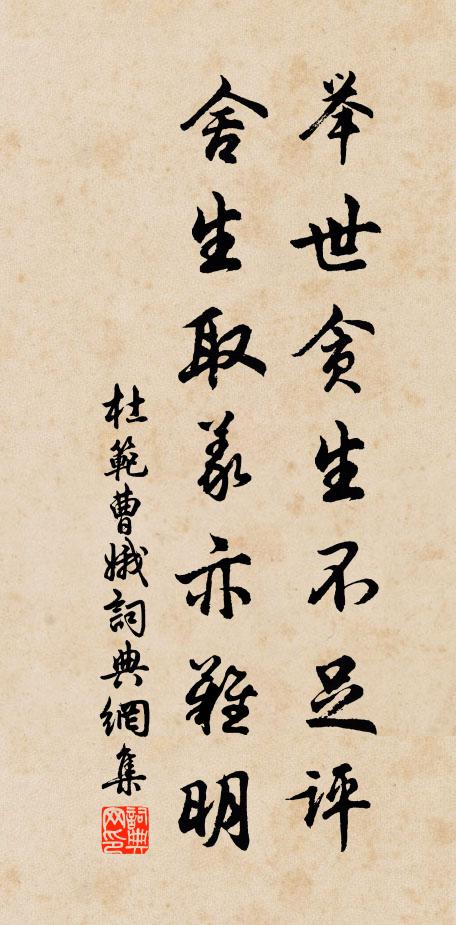 举世贪生不足评
舍生取义亦难明
杜範曹娥詞典網集
詞典网印